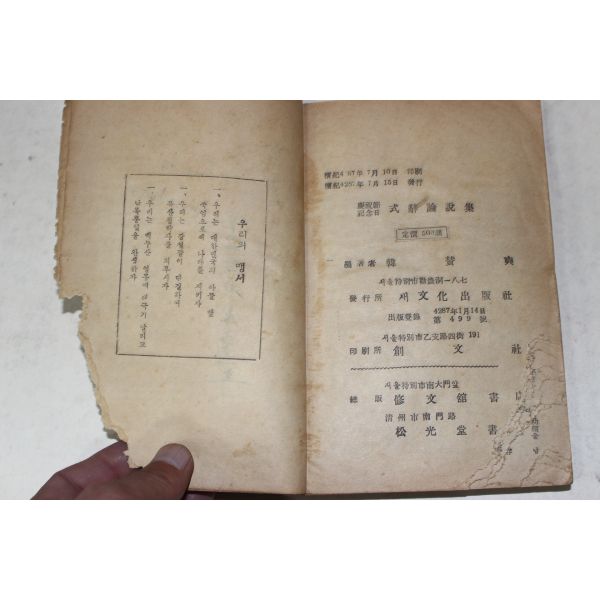 우리의 맹서
一、우리는 대한민국의 아들 딸
죽엄으로써 나라를 지키자
一、우리는 강철같이 단결하여
공산침략자를 처부시자
一、우리는 백두산 영봉에 태극기 날리고
남북통일을 완성하자
檀紀4287年 7月 10日 印刷
檀紀4287年 7月 15日 發行
慶祝節
記念日 式辭論說集
定價 500圜
編著者 韓
서울特別市
發行所 새文化出版社
4287年1月14日
出版登錄 第499號
서울特別市乙支路四街 191
印刷所 創文社
서울特別市南大門
總販 修文館書
清州市南門路
松光堂書